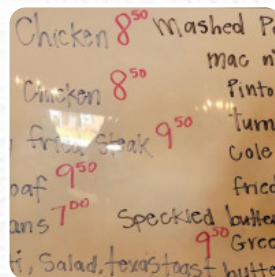 Chicken 8⁵⁰ Mashed
mac n
Chicken 8⁵⁰ Pinto
fried steak 9⁵⁰ Turn
Cole
oaf 9⁵⁰ fried
ans 7⁰⁰ Speckled butter
9⁵⁰ Gree
, Salad, texas toast butt